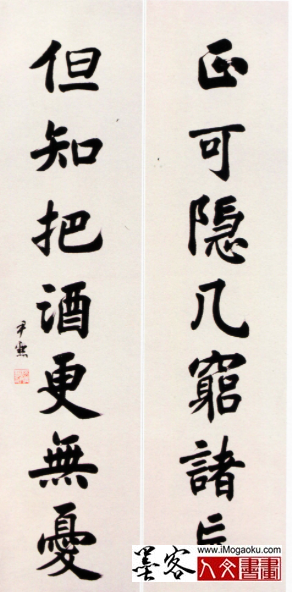 正可隱几窮諸
但知把酒更無憂
尹默
墨客
www.iMogaoku.com
人文書畫